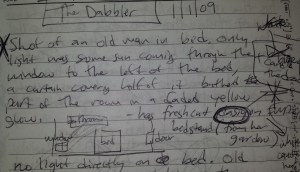 The Dabbler 11/1/09
Shot of an old man in bed, only
light was some sun coming through the
window to the left of the bed,
a curtain covers half of it bathes
part of the room in a faded yellow
glow.
- has fresh cut
bedstand (from her
garden)
window bed door
no light directly on bed. Old